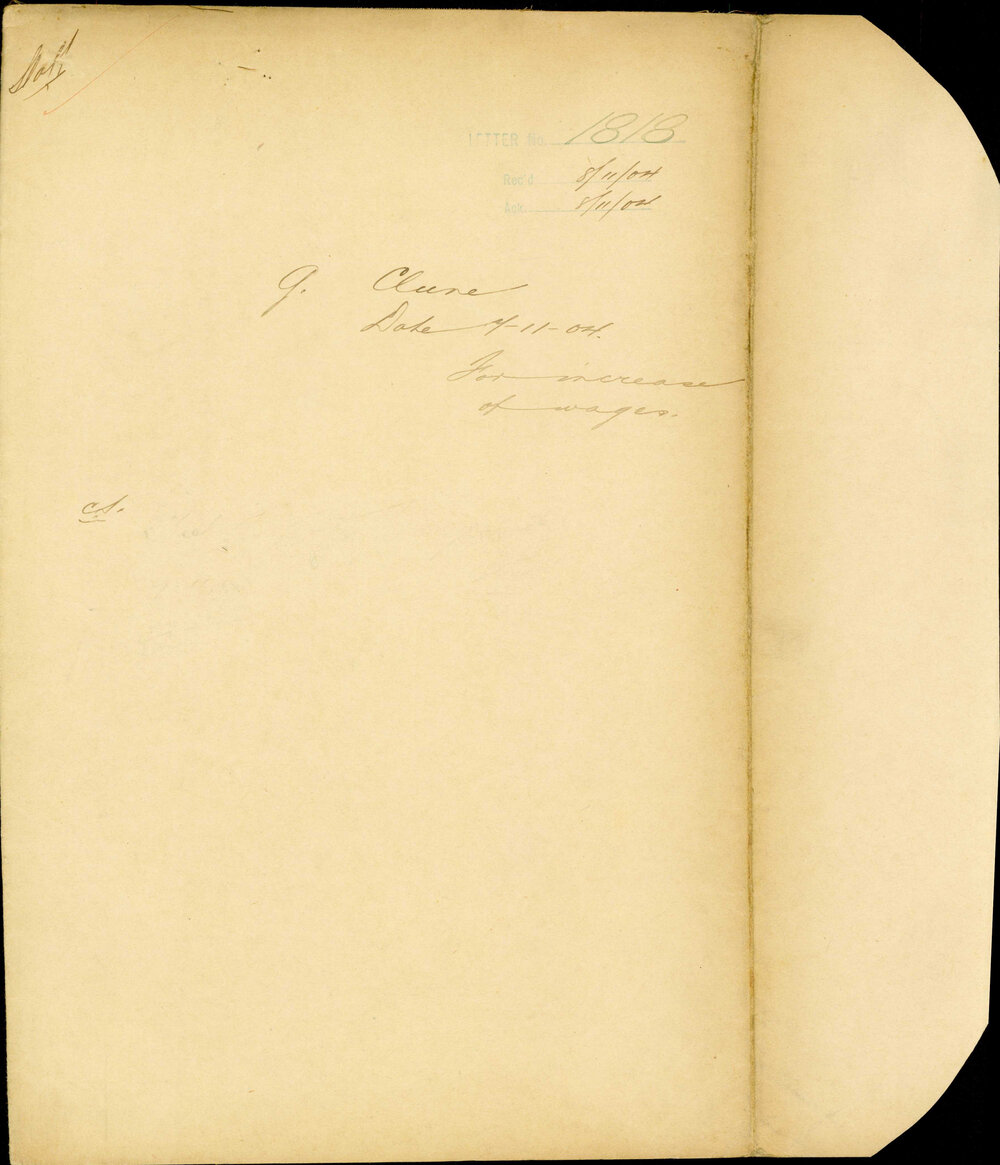 Staff
LETTER No. 1818
Rec'd 8/11/04
Ack. 8/11/04
G. Clune
Date 7-11-04.
For increase
of wages.